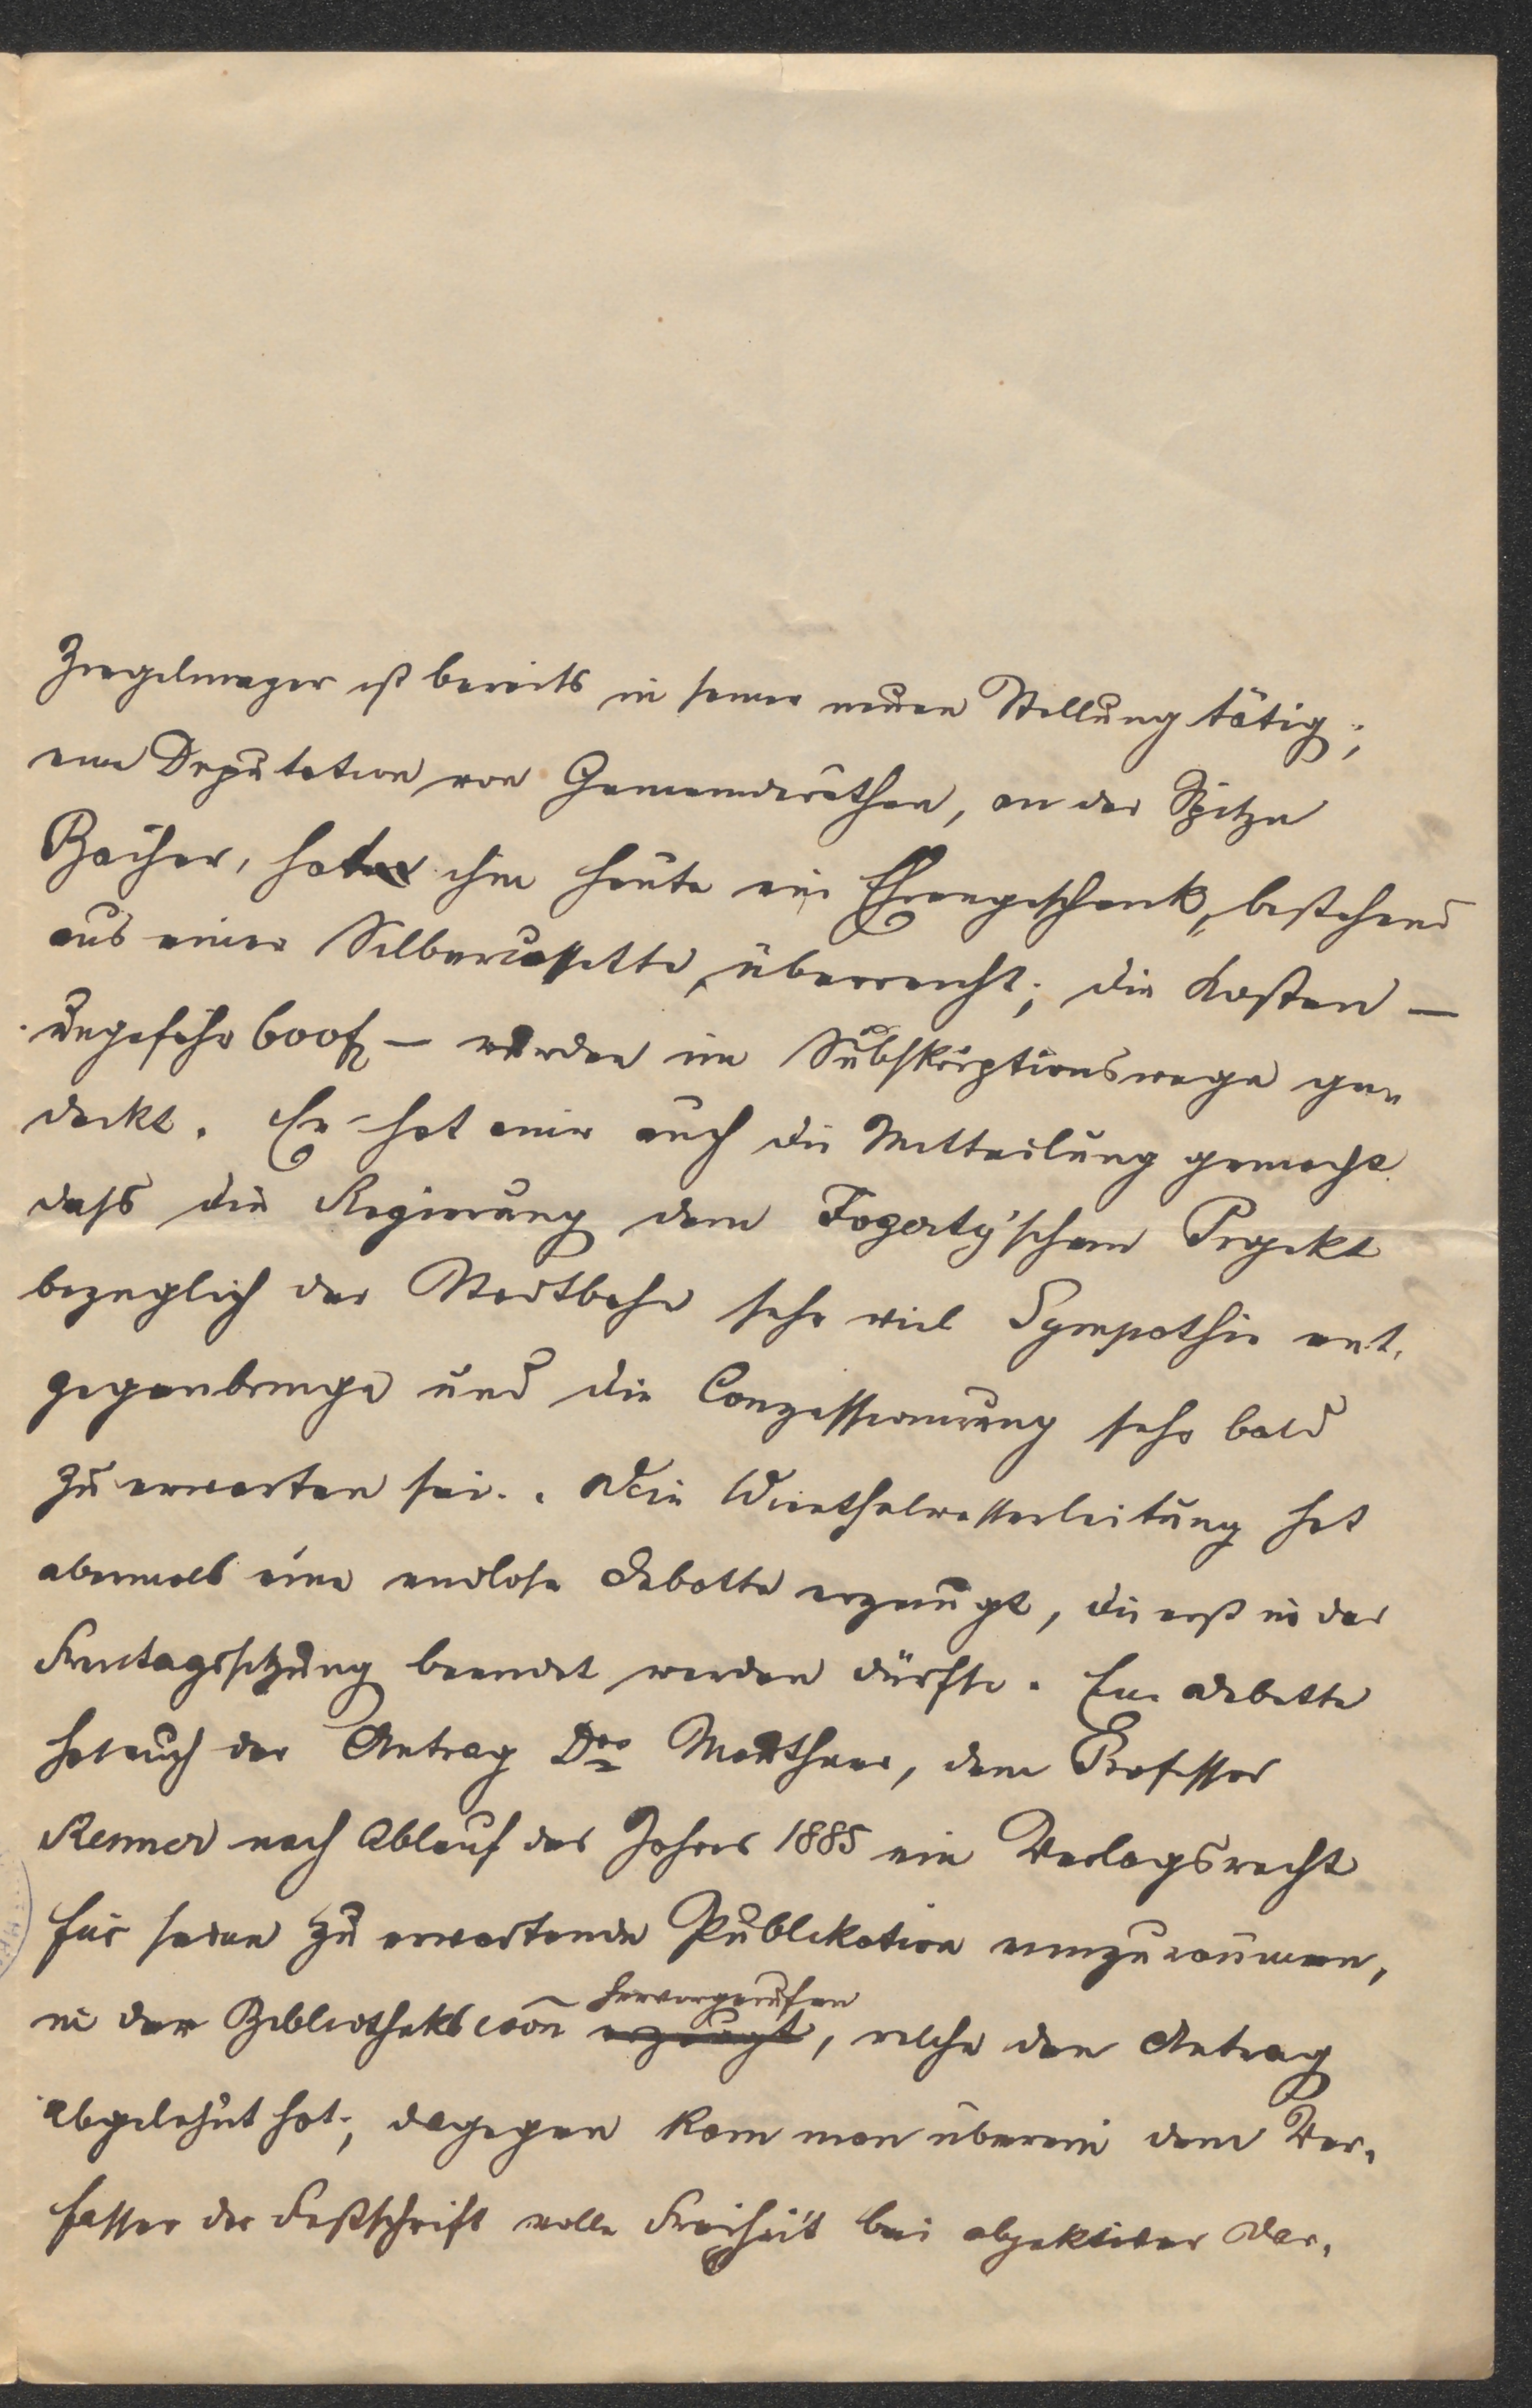 Ziegelmayer ist bereits in seiner neuen Stellung tätig;
eine Deputation von Gemeinderäthen, an der Spitze
Bächer, hat ihm heute ein Ehrengeschenk, bestehend
aus einer Silbercassette, überreicht; die Kosten —
ungefähr 600 f — wurden im Subskriptionswege ge„
deckt. Er hat mir auch die Mitteilung gemacht
dass die Regierung dem Fogerty'schen Projekt
bezueglich der Stadtbahn sehr viel Sympathie ent.
gegenbringe und die Conzessionirung sehr bald
zu erwarten sei. Die Wienthalwasserleitung hat
abermals eine endlose Debatte erzeugt, die erst in der
Freitagssitzung beendet werden dürfte. Eine Debatte
hat auch der Antrag Drs, dem Professor
Renner nach Ablauf des Jahres 1885 ein Verlagsrecht
für seine zu erwartende Publikation einzuräumen,
in der Bibliothekscoon erzeugt hervorgerufen, welche den Antrag
abgelehnt hat; dagegen kam man überein dem Ver.
fasser der Festschrift volle Freiheit bei objektiver Dar.